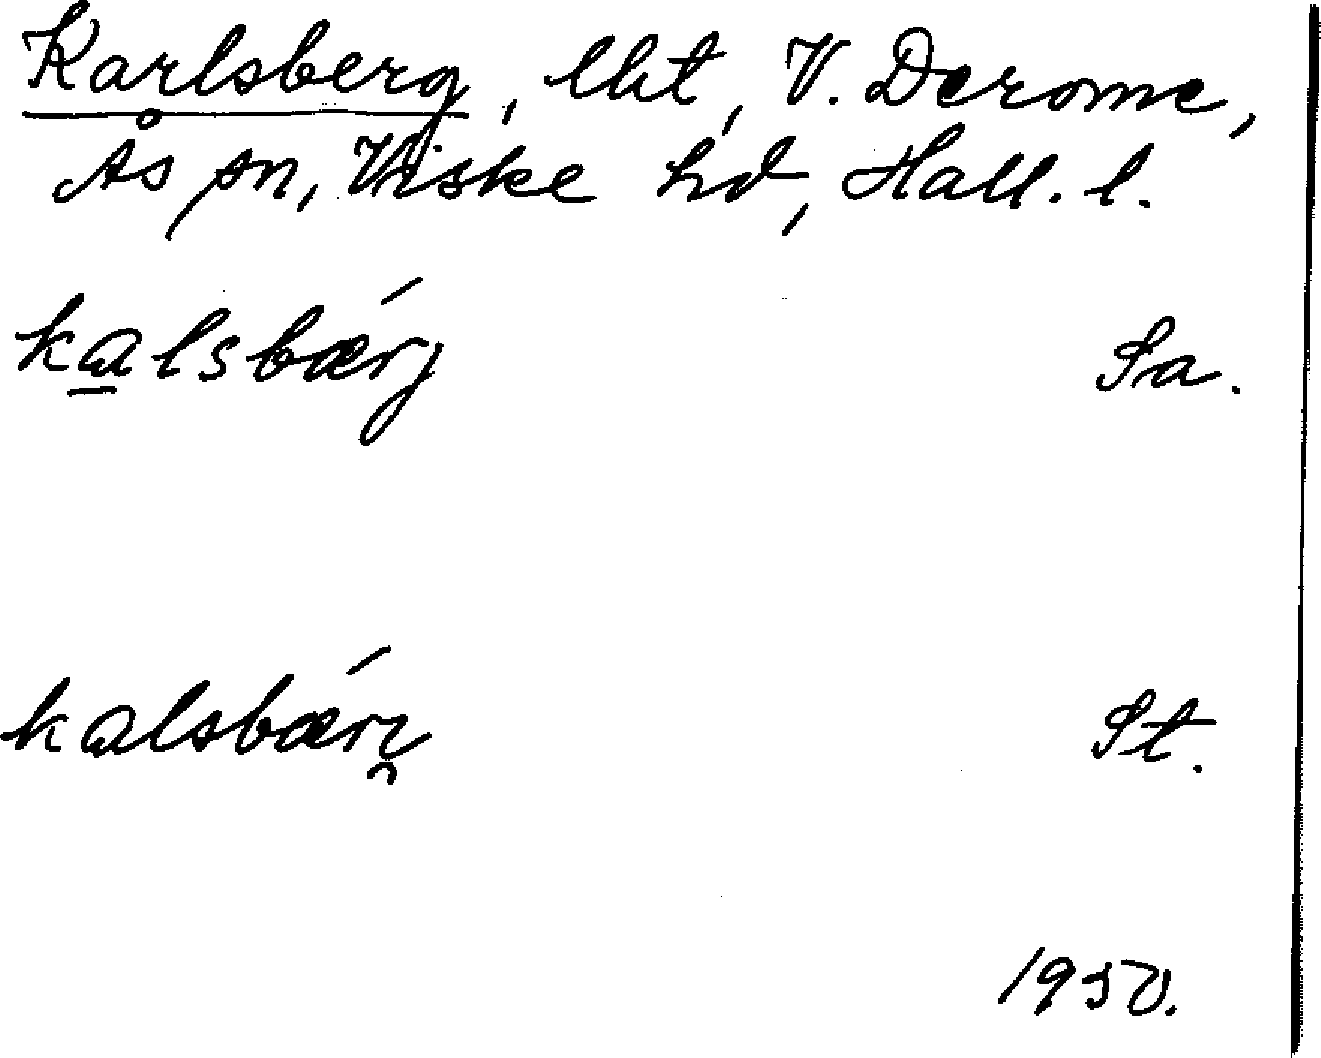 Karlsberg, lht, V. Derome,
Ås sn, Viske hd, Hall. l.
kalsbærj́ Sa.
kalsbæŕ̭ St.
1950.